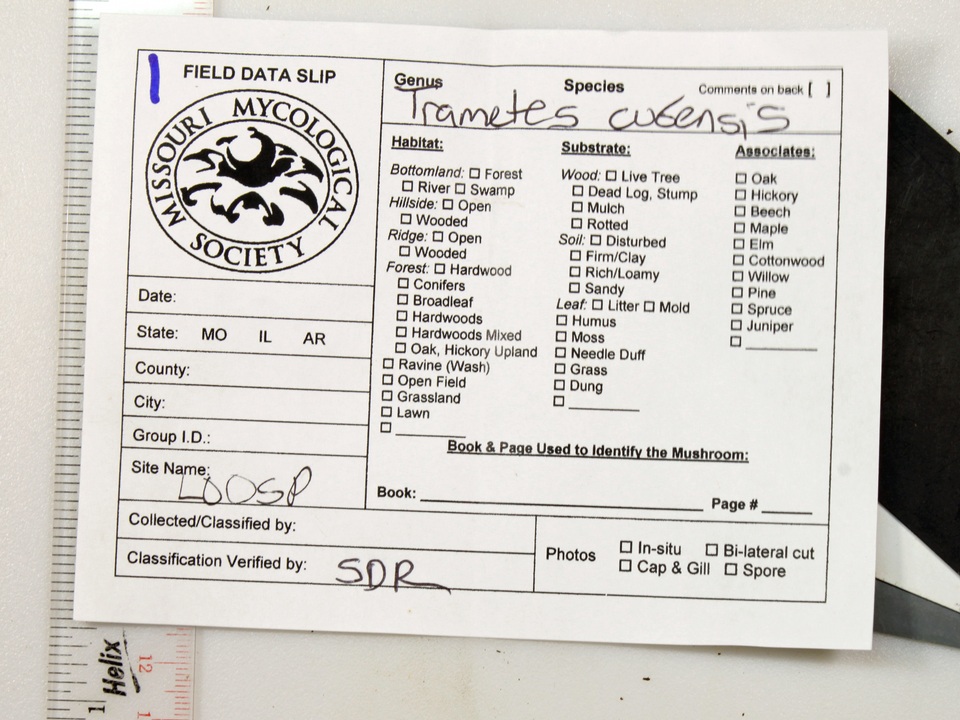 FIELD DATA SLIP
MISSOURI MYCOLOGICAL SOCIETY
Date:
State: MO IL AR
County:
City:
Group I.D.:
Site Name:
LDOSP
Collected/Classified by:
Classification Verified by: SDR
Genus Species Comments on back [ ]
Trametes cubensis
Habitat:
Bottomland: ☐ Forest
☐ River ☐ Swamp
Hillside: ☐ Open
☐ Wooded
Ridge: ☐ Open
☐ Wooded
Forest: ☐ Hardwood
☐ Conifers
☐ Broadleaf
☐ Hardwoods
☐ Hardwoods Mixed
☐ Oak, Hickory Upland
☐ Ravine (Wash)
☐ Open Field
☐ Grassland
☐ Lawn
☐
Substrate:
Wood: ☐ Live Tree
☐ Dead Log, Stump
☐ Mulch
☐ Rotted
Soil: ☐ Disturbed
☐ Firm/Clay
☐ Rich/Loamy
☐ Sandy
Leaf: ☐ Litter ☐ Mold
☐ Humus
☐ Moss
☐ Needle Duff
☐ Grass
☐ Dung
☐
Associates:
☐ Oak
☐ Hickory
☐ Beech
☐ Maple
☐ Elm
☐ Cottonwood
☐ Willow
☐ Pine
☐ Spruce
☐ Juniper
☐
Book & Page Used to Identify the Mushroom:
Book: Page #
Photos ☐ In-situ ☐ Bi-lateral cut
☐ Cap & Gill ☐ Spore
Helix
12
1